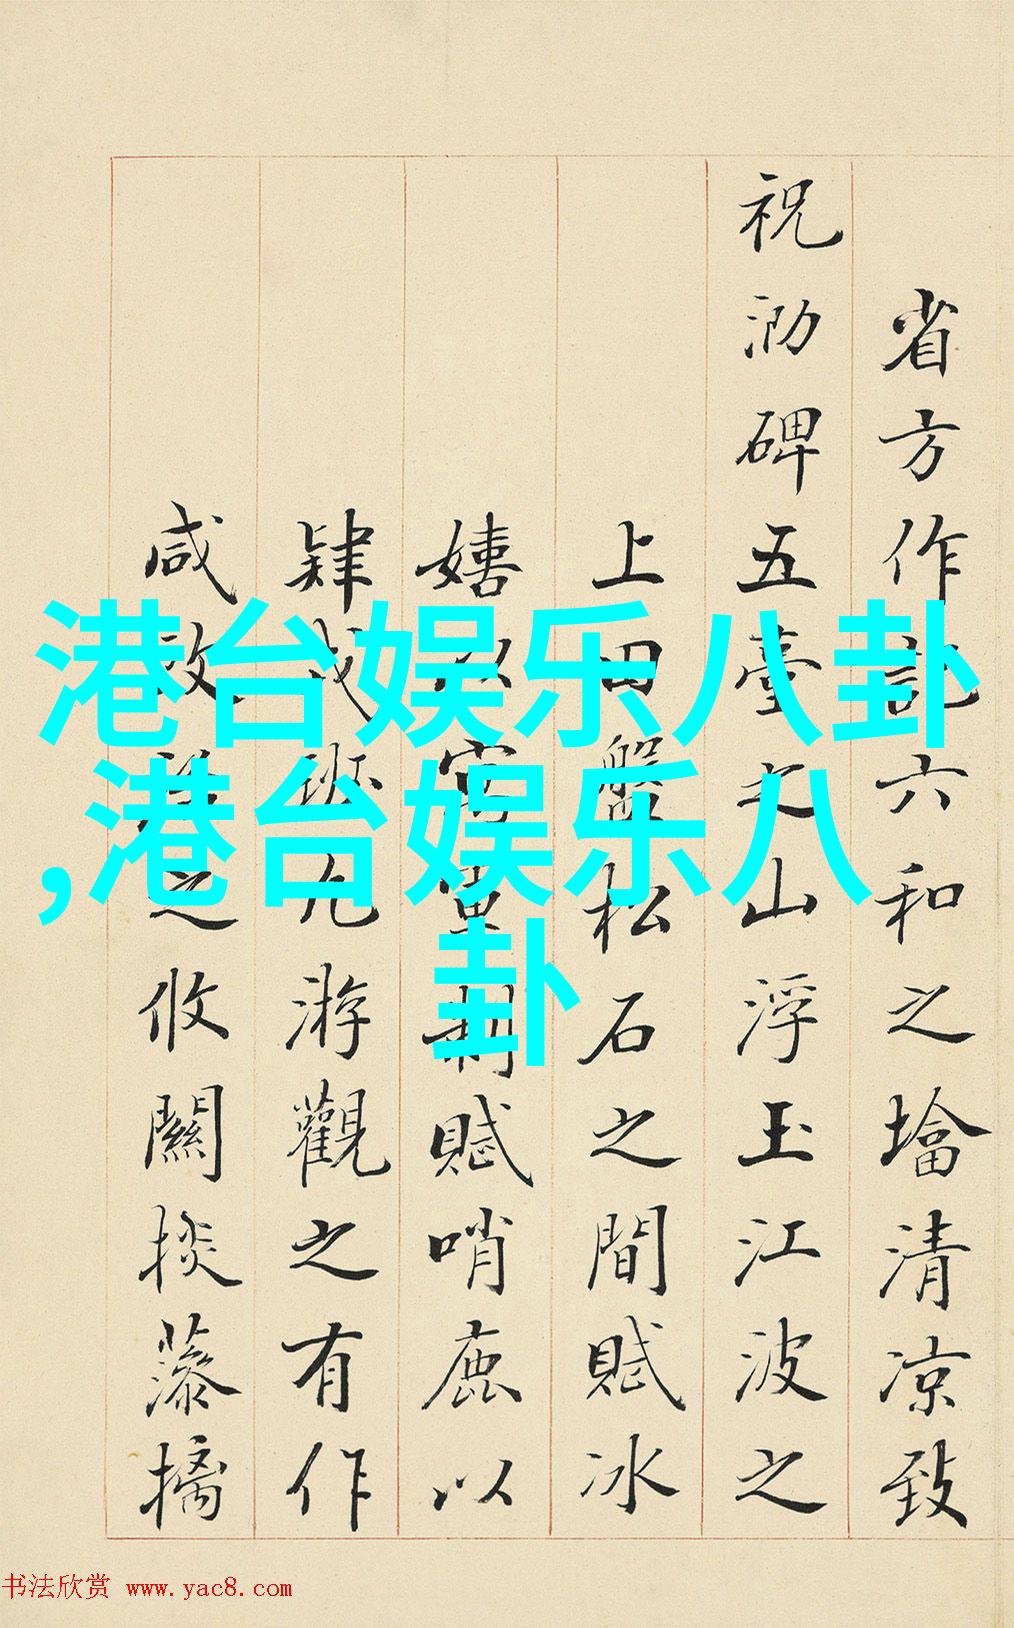 省方作記六和之墖清凉致
祝泐碑五臺之山浮玉江波之
上田盤松石之間賦冰
嬉以
賦哨鹿以
肄武
游觀之有作
咸攷
之
攸關掞藻摛
港台娱乐八卦
,港台娱乐八
卦
书法欣赏 www.yac8.com